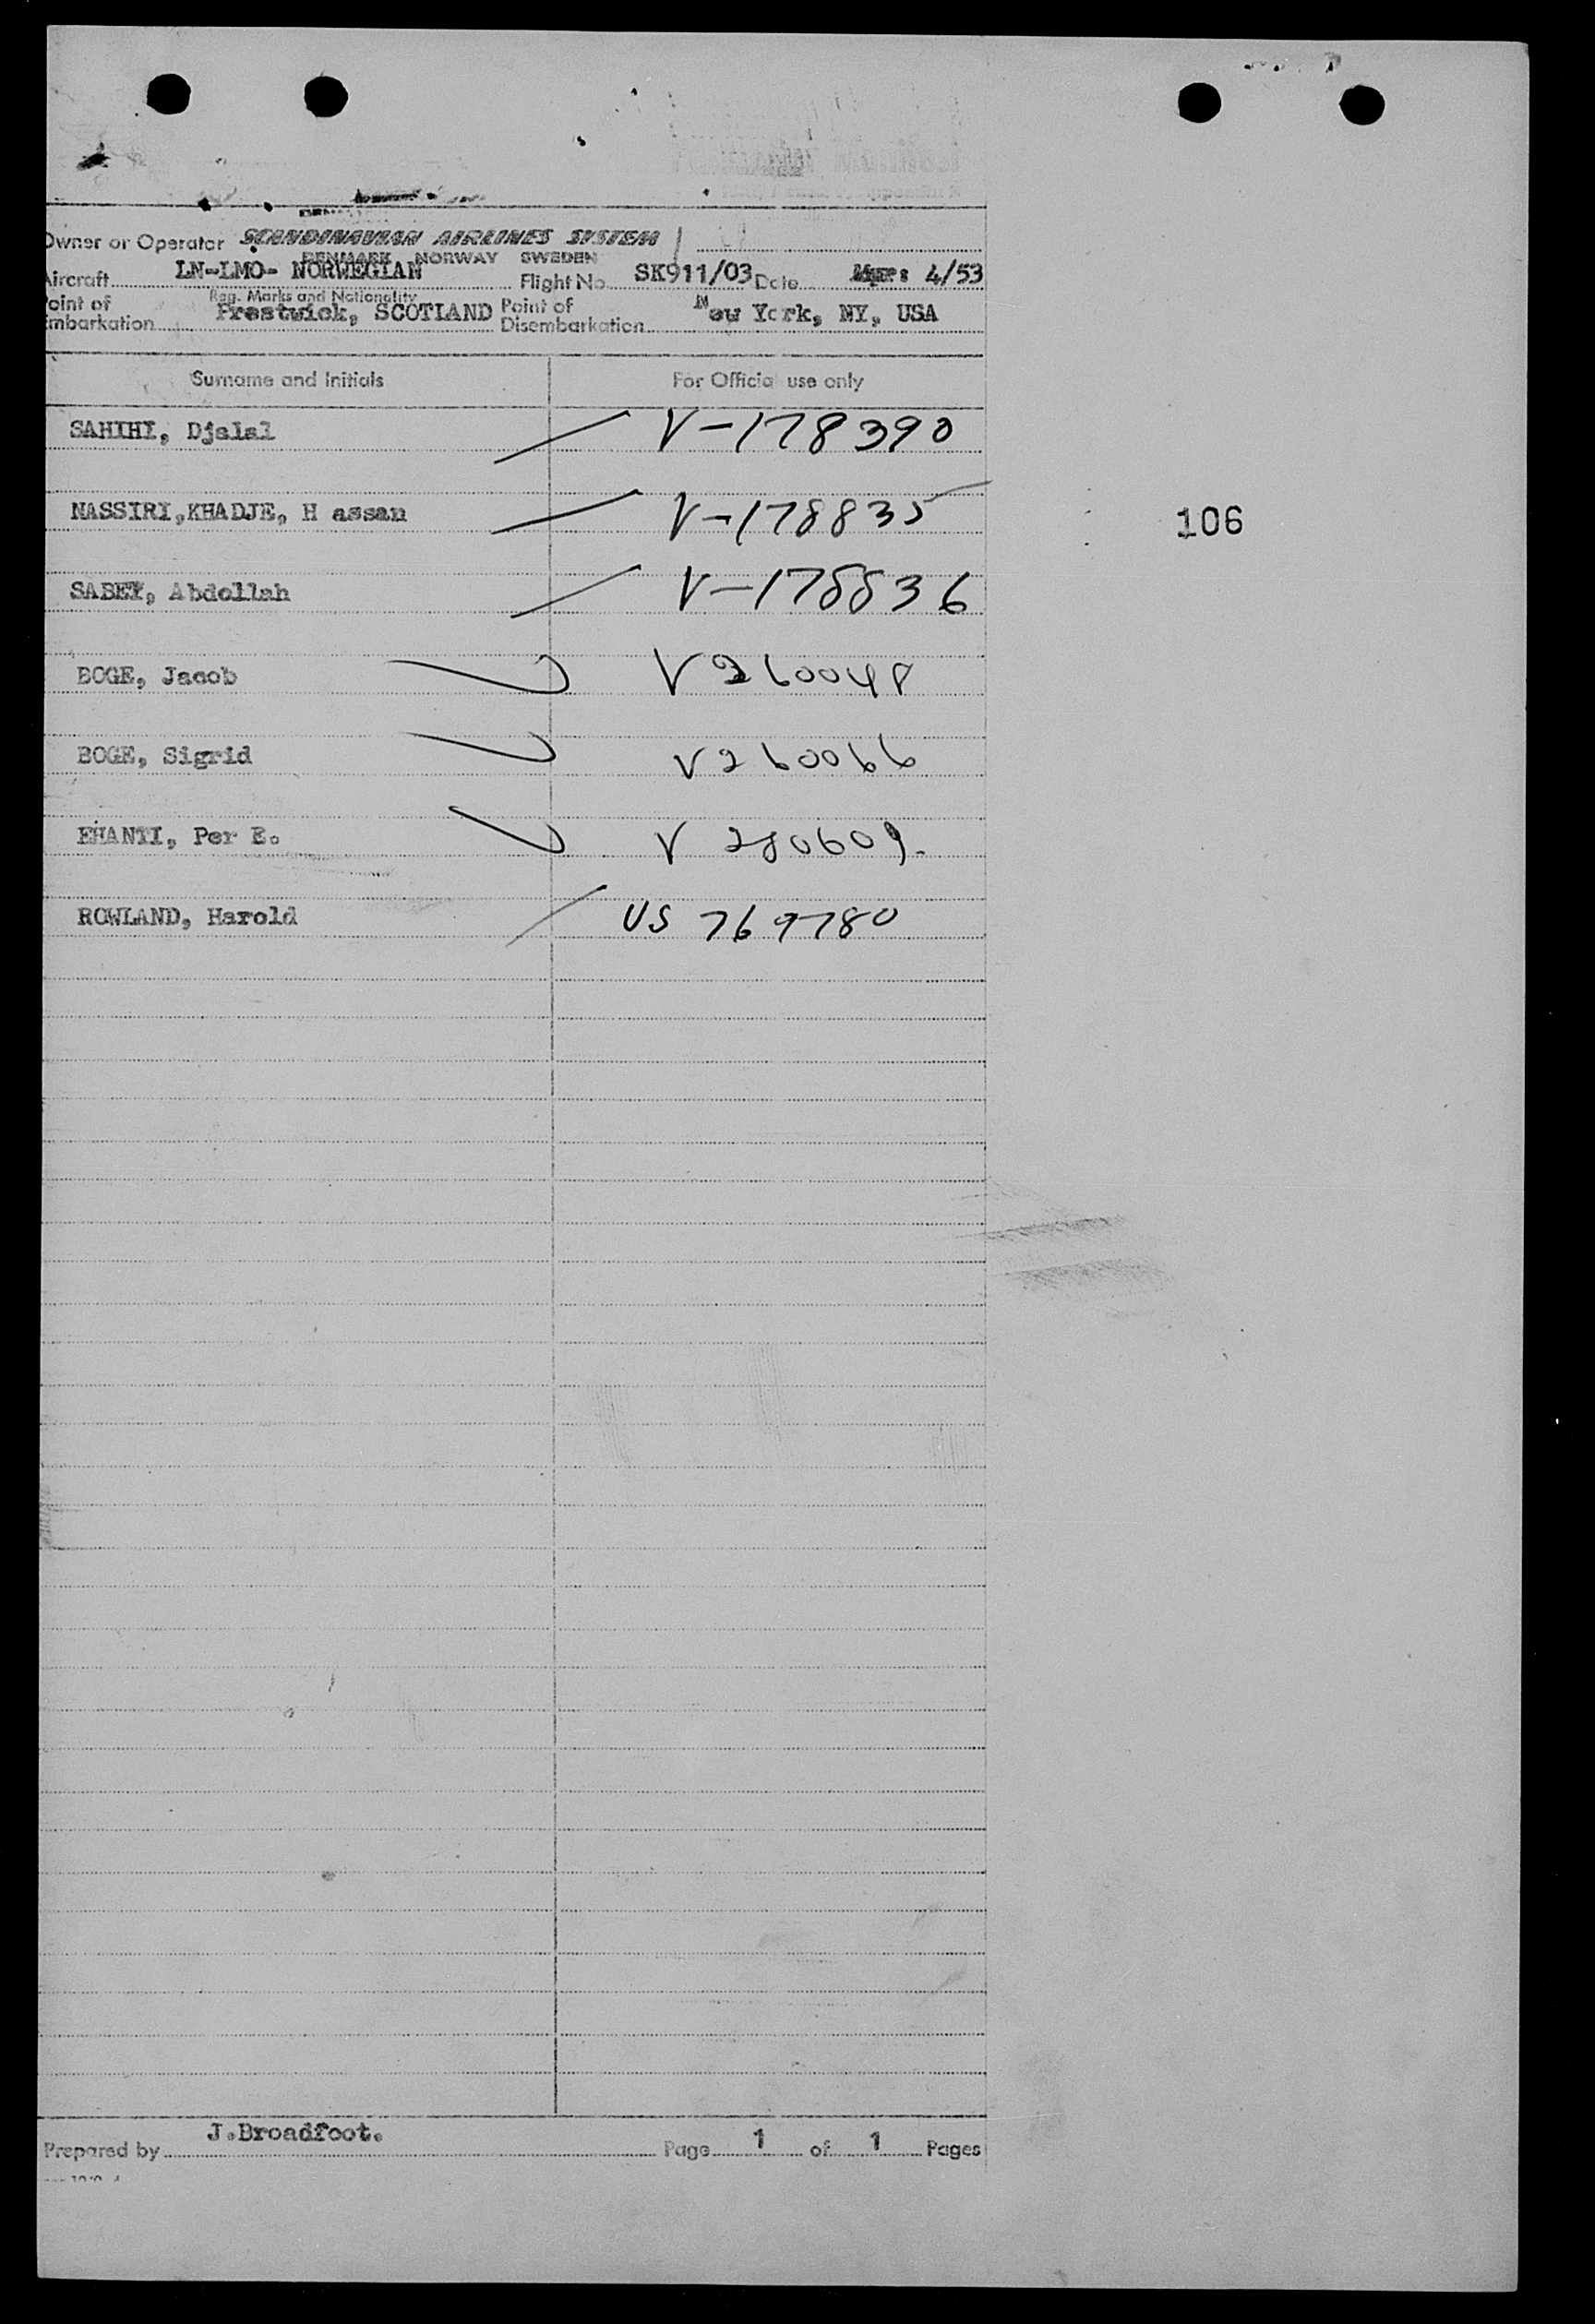 Owner or Operator SCANDINAVIAN AIRLINES SYSTEM
DENMARK NORWAY SWEDEN
Aircraft LN-LMO- NORWEGIAN Flight No. SK911/03 Date 4/53
Reg. Marks and Nationality
Point of Embarkation Prestwick, SCOTLAND Point of Disembarkation New York, NY, USA
Surname and Initials For Official use only
SAHIHI, Djalal V-178390
NASSIRI,KHADJE, H assan V-178835
106
SABEY, Abdollah V-178836
BOGE, Jacob V260048
BOGE, Sigrid V260066
EHANTI, Per E. V 280609.
ROWLAND, Harold US 769780
J.Broadfoot.
Prepared by Page 1 of 1 Pages